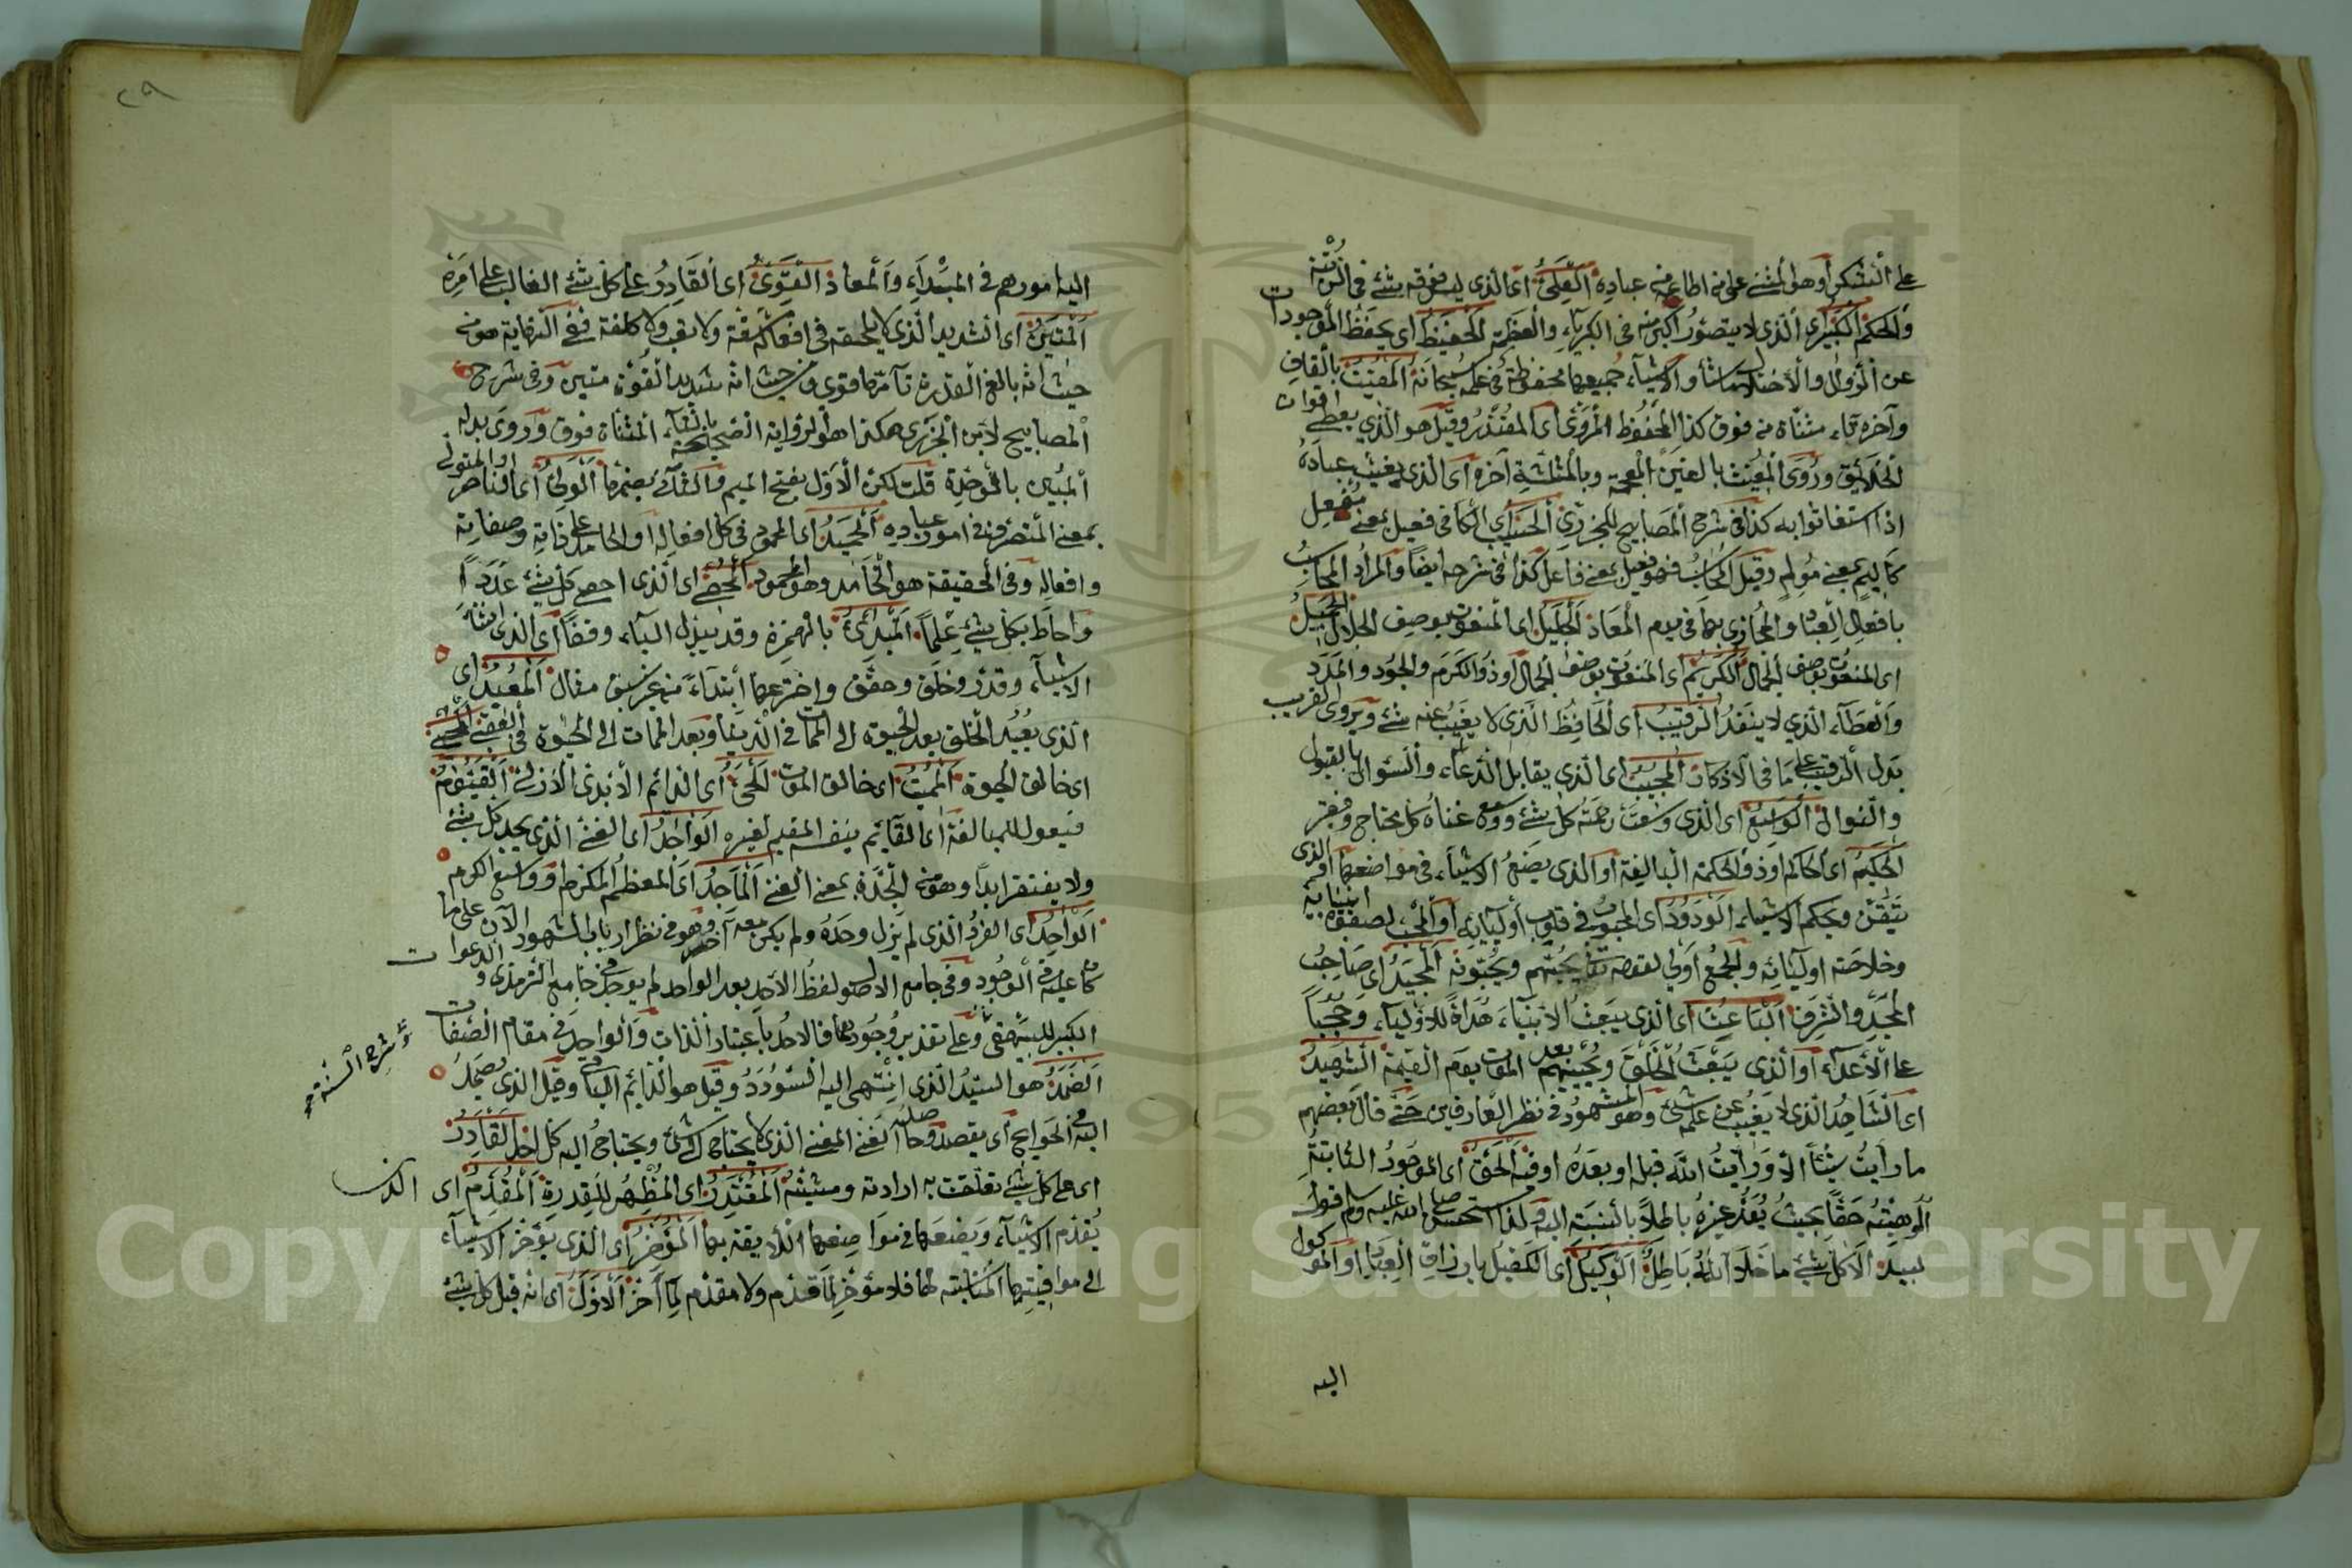 على الشكر أو هو المثنى على من اطاعه من عباده العلي أي الذي ليس فوقه شئ في الرتبة
والحكم الكبير الذي لا يتصور اكبر منه في الكبرياء والعظمة الحفيظ اى يحفظ الموجودات
عن الزوال والاختلال ما شاء والاشياء جميعها محفوظة في علمه سبحانه المقيت بالقاف
وآخره تاء مثناة من فوق كذا المحفوظ المروي اى المقتدر وقيل هو الذي يعطي اقوات
الخلائق وروى المغيث بالغين المعجمة وبالمثلثة آخره اى الذي يغيث عباده
اذا استغاثوا به كذا في شرح المصابيح للجزري الحسيب اى الكافي فعيل بمعنى مفعل
كأليم بمعنى مولم وقيل المحاسب فهو فعيل بمعنى فاعل كذا في شرحه ايضا والمراد المحاسب
بافعال العباد والمجازي بها في يوم المعاد الجليل اى المنعوت بوصف الجلال الجميل
اى المنعوت بوصف الجمال الكريم اى المنعوت بوصف الجمال او ذو الكرم والجود والمدد
والعطاء الذي لا ينفد الرقيب أى الحافظ الذى لا يغيب عنه شئ ويروى القريب
بدل الرقيب على ما فى الاذكار المجيب اى الذي يقابل الدعاء والسؤال بالقبول
والنوال الواسع اى الذى وسعت رحمته كل شئ ووسع غناه كل محتاج وفقر
الحكيم اى الحاكم او ذو الحكمة البالغة او الذى يضع الاشياء في مواضعها او الذى
يتقن ويحكم الاشياء الودود اى المحبوب في قلوب أوليائه أو المحب لصفوة انبيائه
وخلاصة اوليائه والجمع اولى لقوله تعالى يحبهم ويحبونه المجيد اى صاحب
المجد والشرف الباعث اى الذى يبعث الانبياء هداة للاولياء وحججا
على الاعداء أو الذى يبعث الخلق ويحييهم بعد الموت يوم القيمة الشهيد
اى الشاهد الذى لا يغيب عن علمه شئ وهو المشهود في نظر العارفين حتى قال بعضهم
ما رأيت شيئا الا ورأيت الله قبله او بعده او فيه الحق اى الموجود الثابتة
الوهيته حقا بحيث يعد غيره باطلا بالنسبة اليه ولذا استحسن صلى الله عليه وسلم قول
لبيد الا كل شئ ما خلا الله باطل الوكيل اى الكفيل بارزاق العباد او الموكول
اليه
٢٩
اليه امورهم في المبداء والمعاد القوى اى القادر على كل شئ الغالب على امره
المتين اى الشديد الذى لا يلحقه فى افعاله مشقة ولا تعب ولا كلفة ففى النهاية هو من
حيث انه بالغ القدرة تامها قوى ومن حيث انه شديد القوة متين وفى شرح
المصابيح لابن الجزرى هكذا هو الرواية الصحيحة بالتاء المثناة فوق وروى بدله
المبين بالموحدة قلت لكن الاول بفتح الميم والثانى بضمها الولى اى الناصر او المتولى
بمعنى المتصرف فى امور عباده الحميد اى المحمود فى كل افعاله او الحامد على ذاته وصفاته
وافعاله وفى الحقيقة هو الحامد وهو المحمود المحصى اى الذى احصى كل شئ عددا
واحاط بكل شئ علما المبدئ بالهمزة وقد يبدل الياء وقفا أى الذى انشاء
الاشياء وقدر وخلق وحقق واخترعها ابتداء من غير سبق مثال المعيد اى
الذى يعيد الخلق بعد الحيوة الى الممات فى الدنيا وبعد الممات الى الحيوة فى العقبى المحيى
اى خالق الحيوة المميت اى خالق الموت الحى أى الدائم الابدى الازلى القيوم
فيعول للمبالغة اى القائم بنفسه المقيم لغيره الواجد اى الغنى الذى يجد كل شئ
ولا يفتقر ابدا وهو من الجدة بمعنى الغنى الماجد اى المعظم المكرم او واسع الكرم
الواحد اى الفرد الذى لم يزل وحده ولم يكن معه آخر وهو فى نظر ارباب الشهود الآن على ما
كان عليه فى الوجود وفى جامع الاصول لفظ الاحد بعد الواحد لم يوجد فى جامع الترمذى و الدعوات
الكبير للبيهقى وعلى تقدير وجودهما فالاحد باعتبار الذات والواحد فى مقام الصفات
و شرح السنة
الصمد هو السيد الذى انتهى اليه السؤدد وقيل هو الدائم الباقى وقيل الذى يصمد
اليه فى الحوائج أى يقصد وحاصله الغنى المغنى الذى لا يحتاج الى شئ ويحتاج اليه كل احد القادر
اى على كل شئ تعلقت به ارادته ومشيئته المقتدر اى المظهر للقدرة المقدم اى الذى
يقدم الاشياء ويضعها فى مواضعها اللايقة بها المؤخر اى الذى يؤخر الاشياء
الى مواقيتها المناسبة لها فلا مؤخر لما قدم ولا مقدم لما أخر الاول اى انه قبل كل شئ
Copyright © King Saud University